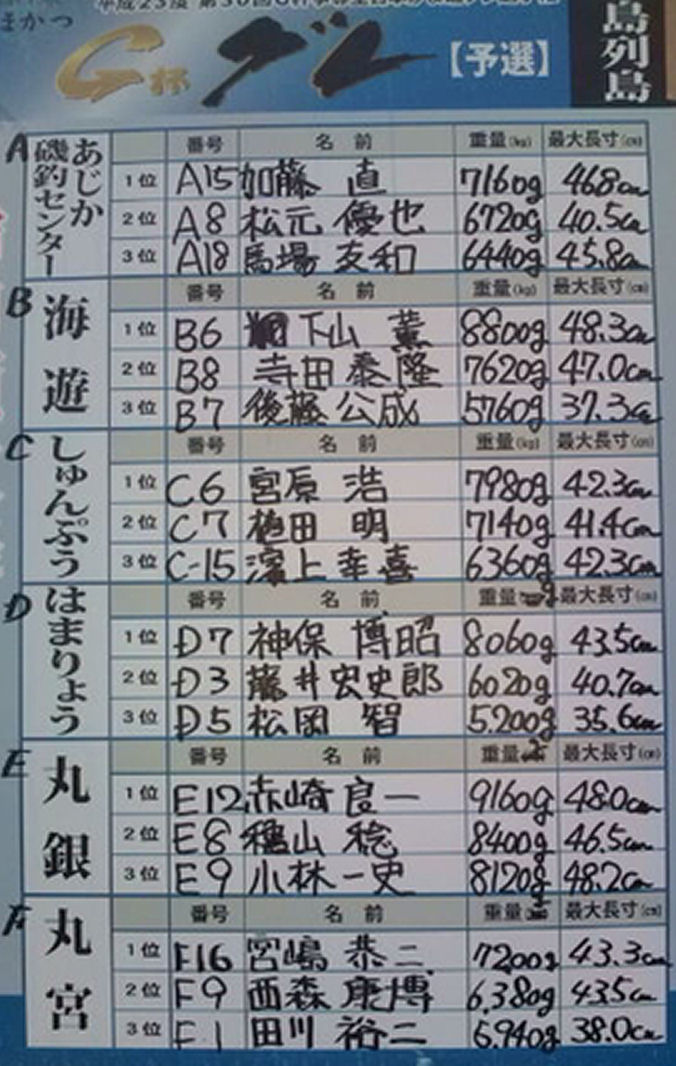 まかつ
G杯 グレ 【予選】
島列島
A あじか磯釣センター
番号 名前 重量(kg) 最大長寸(cm)
1位 A15 加藤 直 7160g 46.8cm
2位 A8 松元 優也 6720g 40.5cm
3位 A18 馬場 友和 6440g 45.8cm
B 海遊
番号 名前 重量(kg) 最大長寸(cm)
1位 B6 下山 薫 8800g 48.3cm
2位 B8 寺田 泰隆 7620g 47.0cm
3位 B7 後藤 公成 5760g 37.3cm
C しゅんぷう
番号 名前 重量(kg) 最大長寸(cm)
1位 C6 宮原 浩 7980g 42.3cm
2位 C7 植田 明 7140g 41.4cm
3位 C-15 濱上 幸喜 6360g 42.3cm
D はまりょう
番号 名前 重量 g 最大長寸(cm)
1位 D7 神保 博昭 8060g 43.5cm
2位 D3 藤井宏史郎 6020g 40.7cm
3位 D5 松岡 智 5.200g 35.6cm
E 丸銀
番号 名前 重量 最大長寸(cm)
1位 E12 赤崎 良一 9160g 48.0cm
2位 E8 穐山 稔 8400g 46.5cm
3位 E9 小林 一史 8120g 48.2cm
F 丸宮
番号 名前 重量 最大長寸(cm)
1位 F16 宮嶋 恭二 7200g 43.3cm
2位 F9 西森 康博 6.380g 43.5cm
3位 F1 田川 裕二 38.0cm